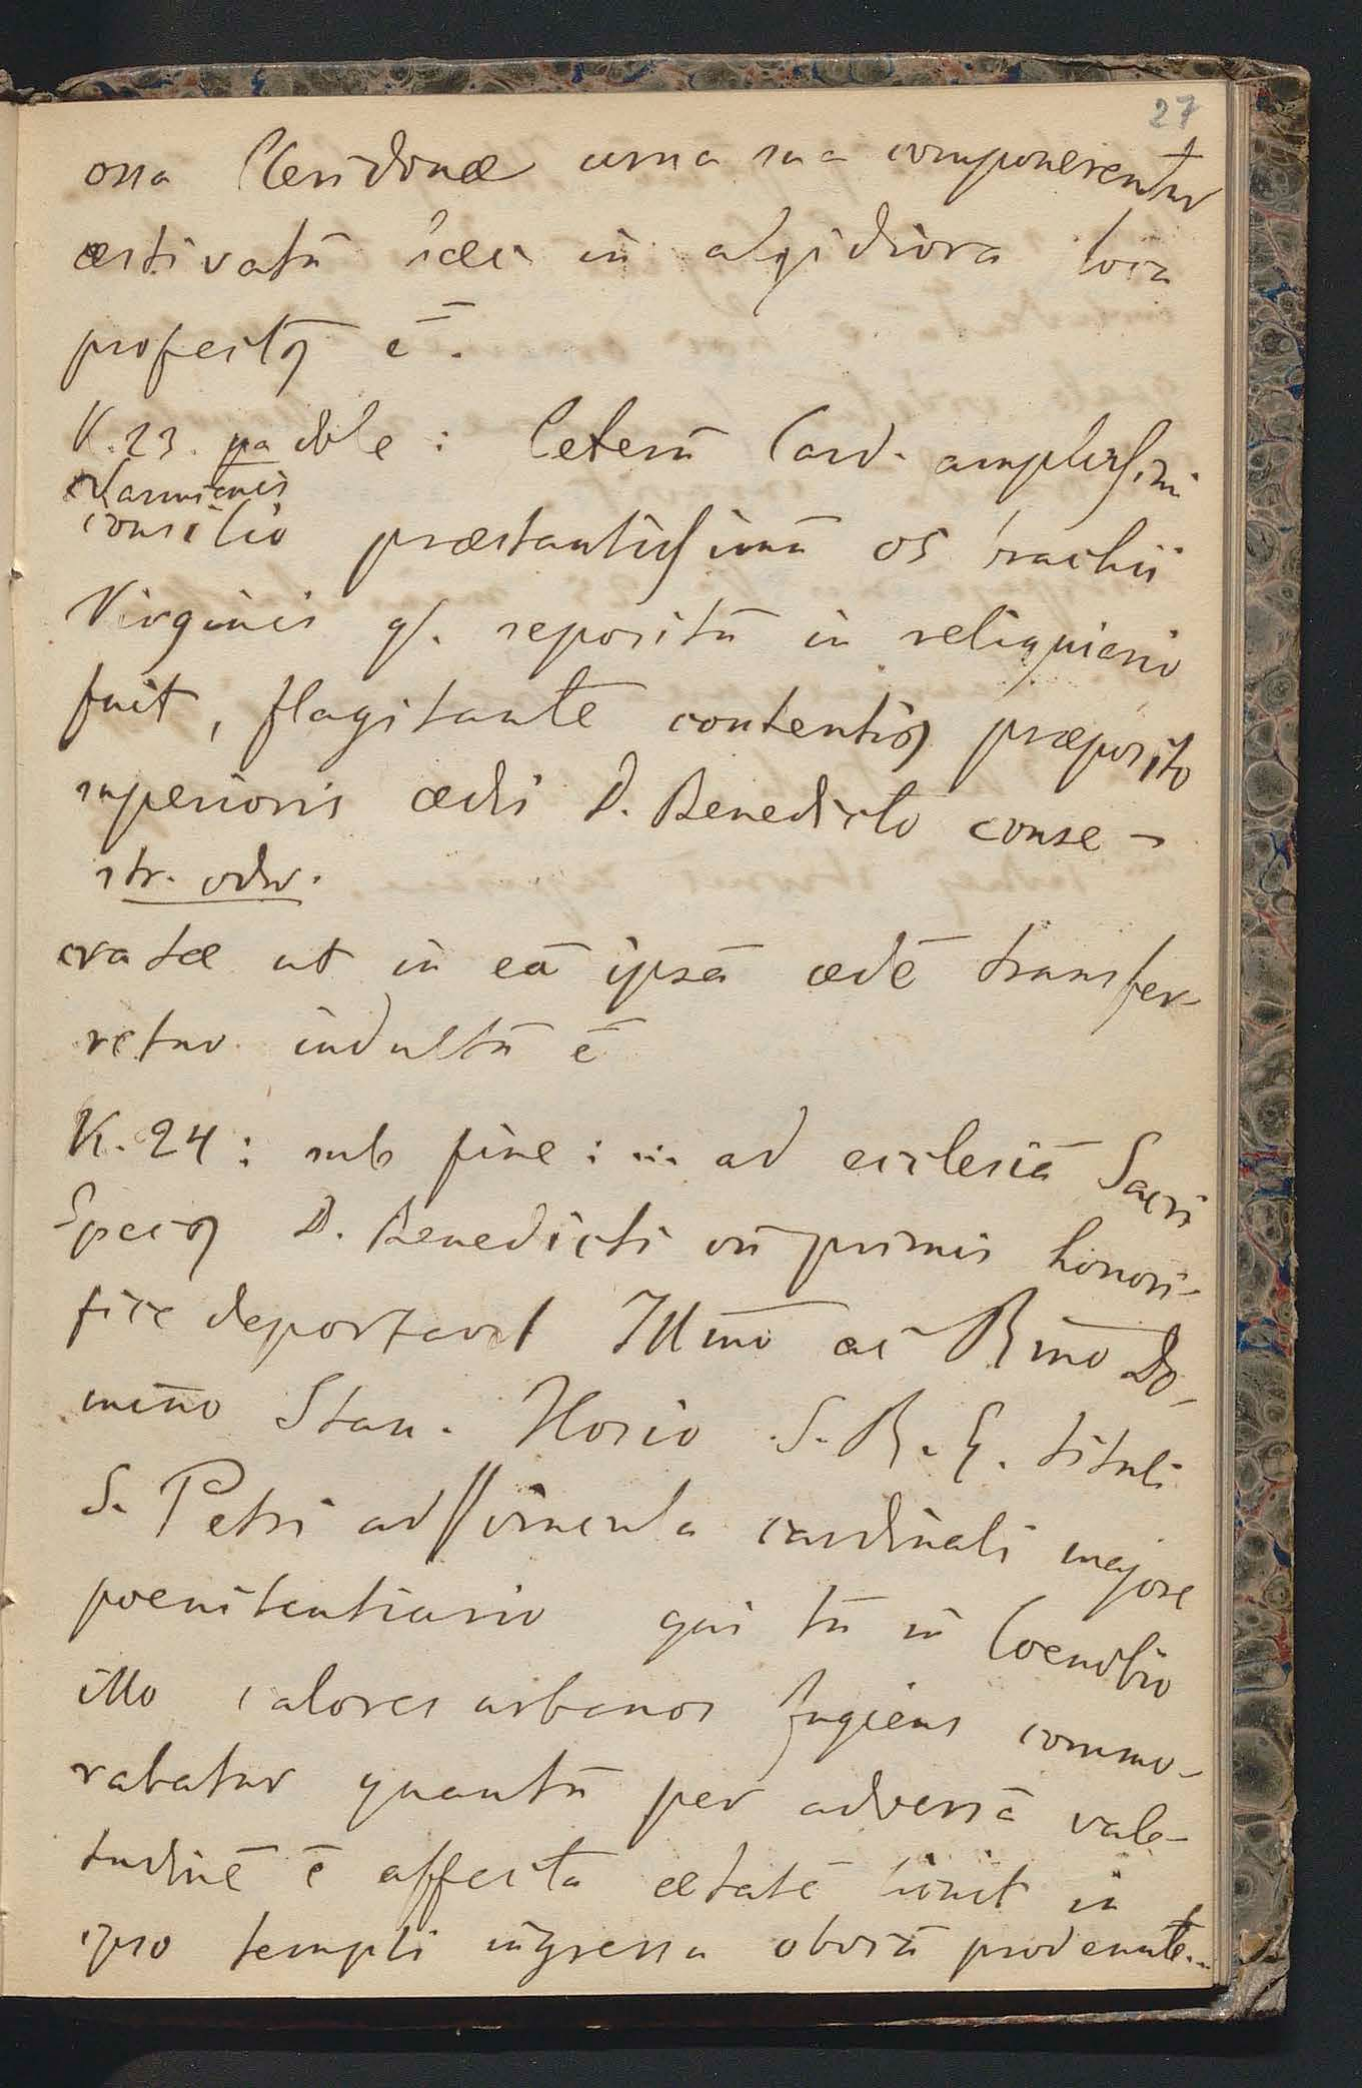 27
ossa Cleridonæ urna sua componerentur
æstivatū in algidiora loca
profectꝯ ē.
K. 23. na dole : Ceterū Card. amplissimi
Varmiensis
consilio præstantissimū os brachii
Virginis qd. repositū in reliquiario
fuit, flagitante contentiꝯ præposito
superioris ædis D. Benedicto conse-
str. odw.
cratæ ut in eā ipsā ædē transfer-
retur indultū ē
K. 24 : sub fine : ... ad ecclesiā Sacri
Specꝯ D. Benedicti cū primis honori-
fice deportavit Illmo ac Rmo Do-
mino Stan. Hosio S. R. E. tituli
S. Petri ad Vincula cardinali majore
poenitentiario qui tū in Coenobio
illo calores urbanos fugiens commo-
rabatur quantū per adversā vale-
tudinē ē affectā ætatē licuit in
ipso templi ingressu obviā prodeunte..